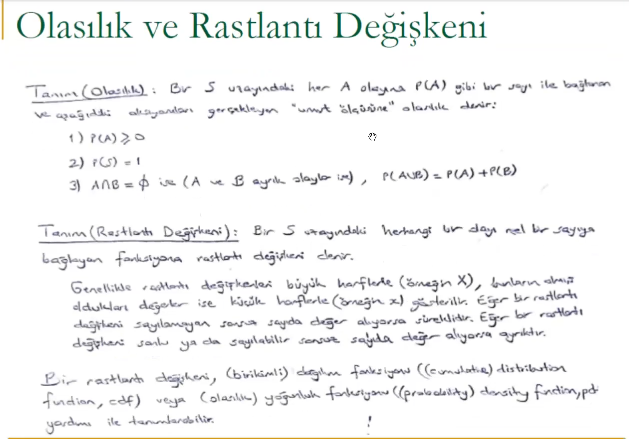 Olasılık ve Rastlantı Değişkeni
Tanım (Olasılık) : Bir S uzayındaki her A olayına P(A) gibi bir sayı ile bağlanan
ve aşağıdaki aksiyomları gerçekleyen "umut ölçüsüne" olasılık denir:
1) P(A) ⩾ 0
2) P(S) = 1
3) A∩B = ∅ ise (A ve B ayrık olaylar ise) , P(A∪B) = P(A) + P(B)
Tanım (Rastlantı Değişkeni) : Bir S uzayındaki herhangi bir olayı reel bir sayıya
bağlayan fonksiyona rastlantı değişkeni denir.
Genellikle rastlantı değişkenleri büyük harflerle (örneğin X), bunların almış
oldukları değerler ise küçük harflerle (örneğin x) gösterilir. Eğer bir rastlantı
değişkeni sayılamayan sonsuz sayıda değer alıyorsa süreklidir. Eğer bir rastlantı
değişkeni sonlu ya da sayılabilir sonsuz sayıda değer alıyorsa ayrıktır.
Bir rastlantı değişkeni, (birikimli) dağılım fonksiyonu ((cumulative) distribution
function, cdf) veya (olasılık) yoğunluk fonksiyonu ((probability) density function, pdf
yardımı ile tanımlanabilir.